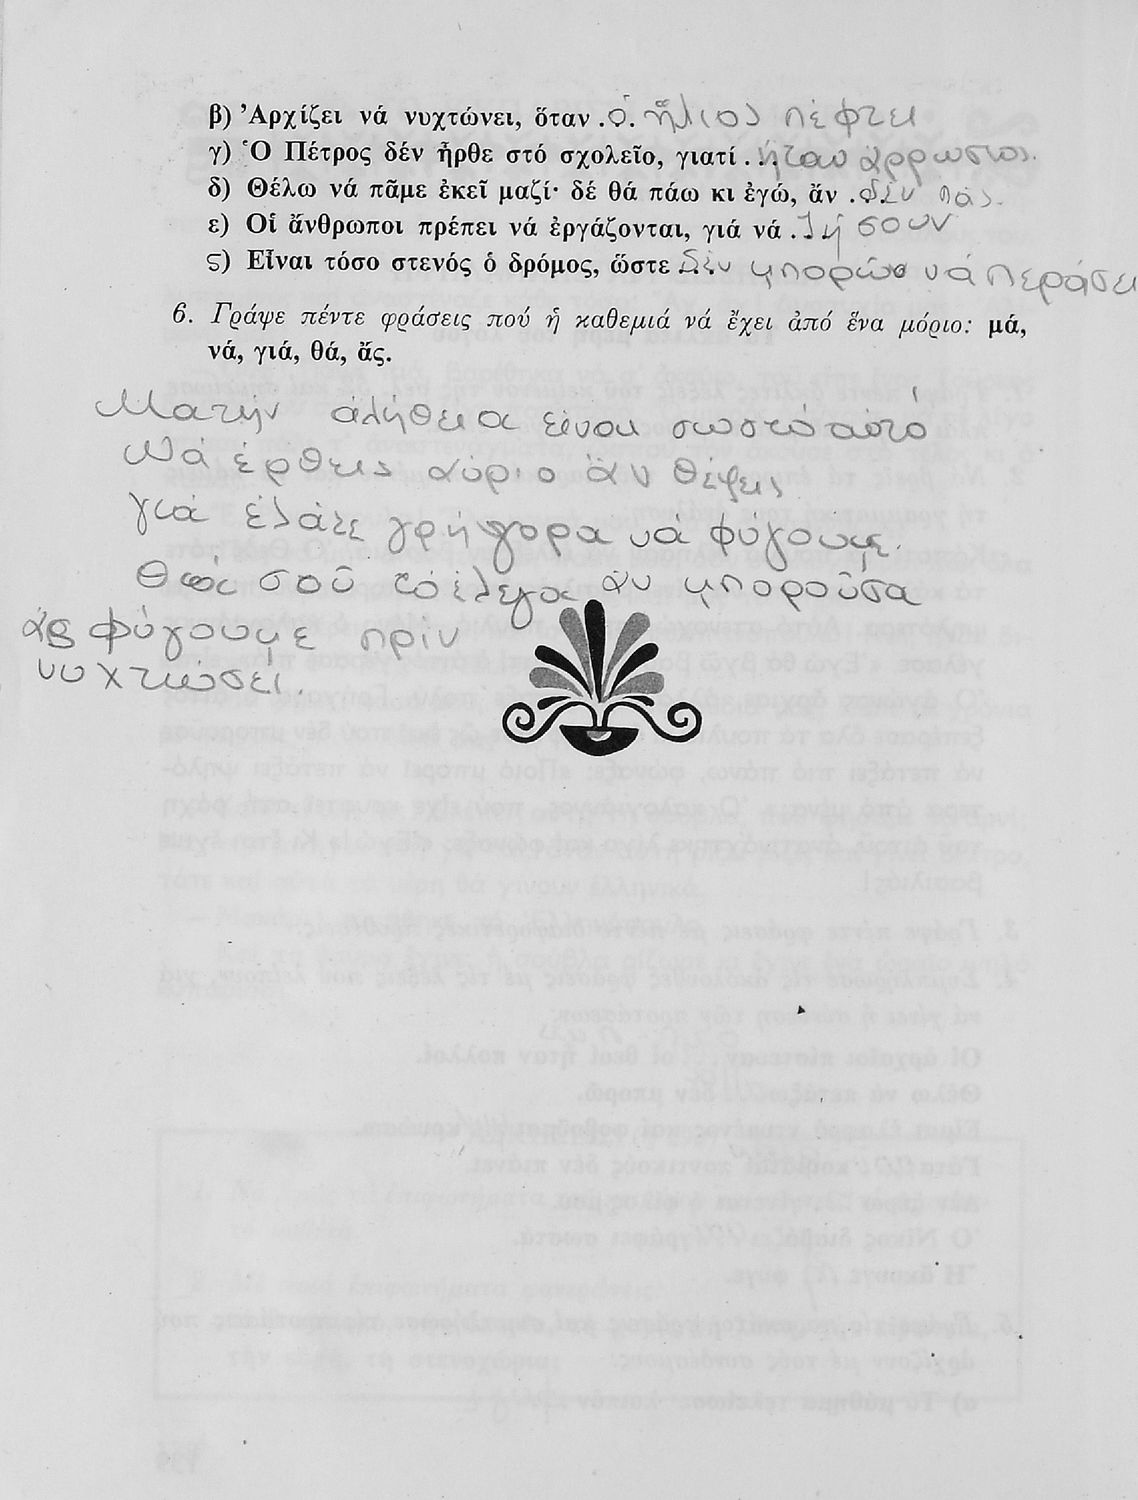 β) Ἀρχίζει νά νυχτώνει, ὅταν . ὁ . ἥλιος πέφτει
γ) Ὁ Πέτρος δέν ἦρθε στό σχολεῖο, γιατί . . ἤταν ἄρρωστος.
δ) Θέλω νά πᾶμε ἐκεῖ μαζί· δέ θά πάω κι ἐγώ, ἄν . δέν πᾶς.
ε) Οἱ ἄνθρωποι πρέπει νά ἐργάζονται, γιά νά . ζήσουν
ϛ) Εἶναι τόσο στενός ὁ δρόμος, ὥστε δέν μπορῶ νά περάσει
6. Γράψε πέντε φράσεις πού ἡ καθεμιά νά ἔχει ἀπό ἕνα μόριο: μά,
νά, γιά, θά, ἄς.
Μα τήν ἀλήθεια εἶναι σωστό αὐτό
Νά ἔρθεις αὔριο ἄν θέλεις
γιά ἐλᾶτε γρήγορα νά φύγουμε.
Θά σοῦ τό ἔλεγα ἄν μποροῦσα
ἄς φύγουμε πρίν
νυχτώσει.